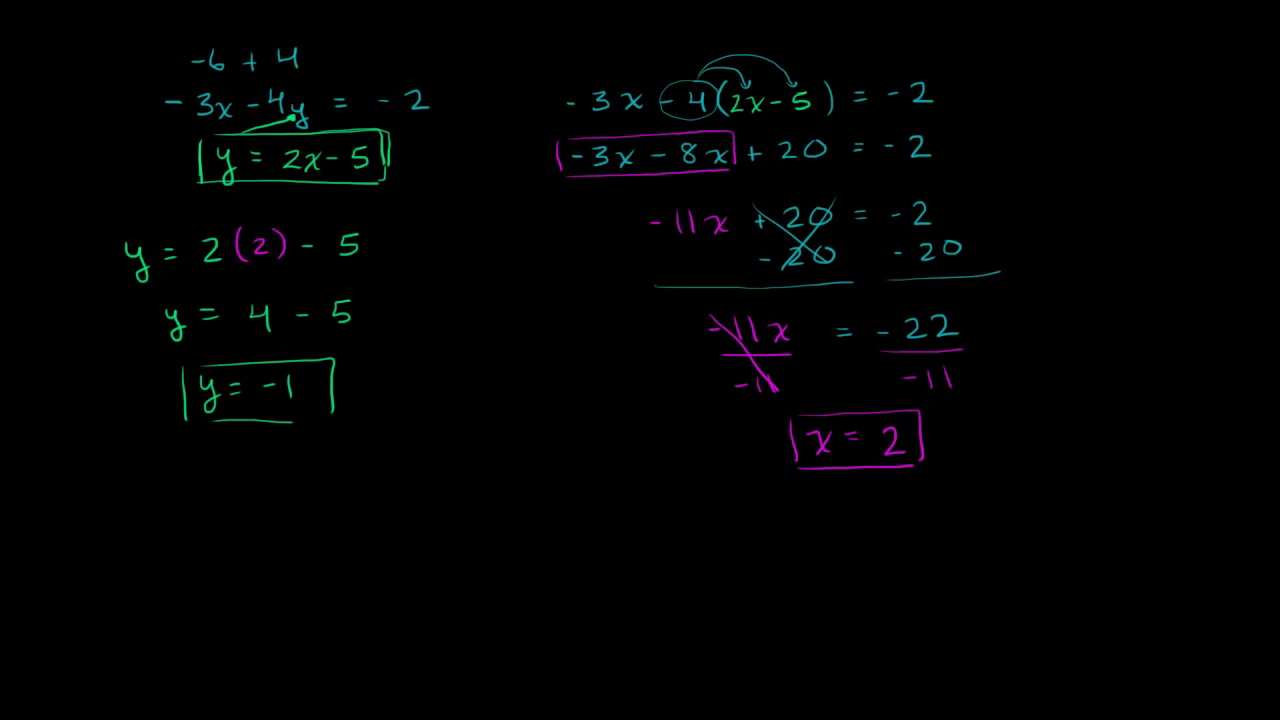 -6 + 4
-3x - 4y = -2
y = 2x - 5
y = 2(2) - 5
y = 4 - 5
y = -1
-3x - 4(2x - 5) = -2
-3x - 8x + 20 = -2
-11x + 20 = -2
-20 -20
-11x = -22
-11 -11
x = 2